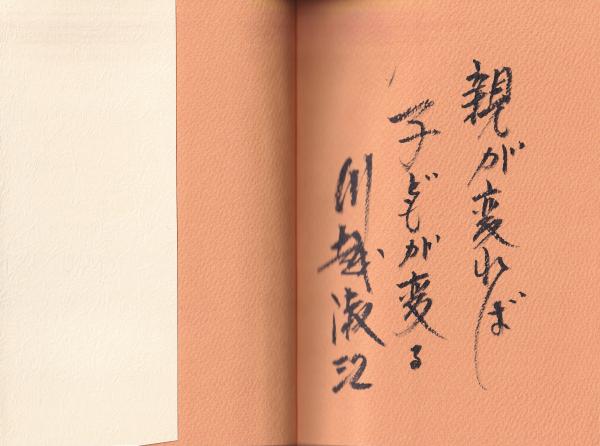 親が変れば
子どもが変る
川越淑江